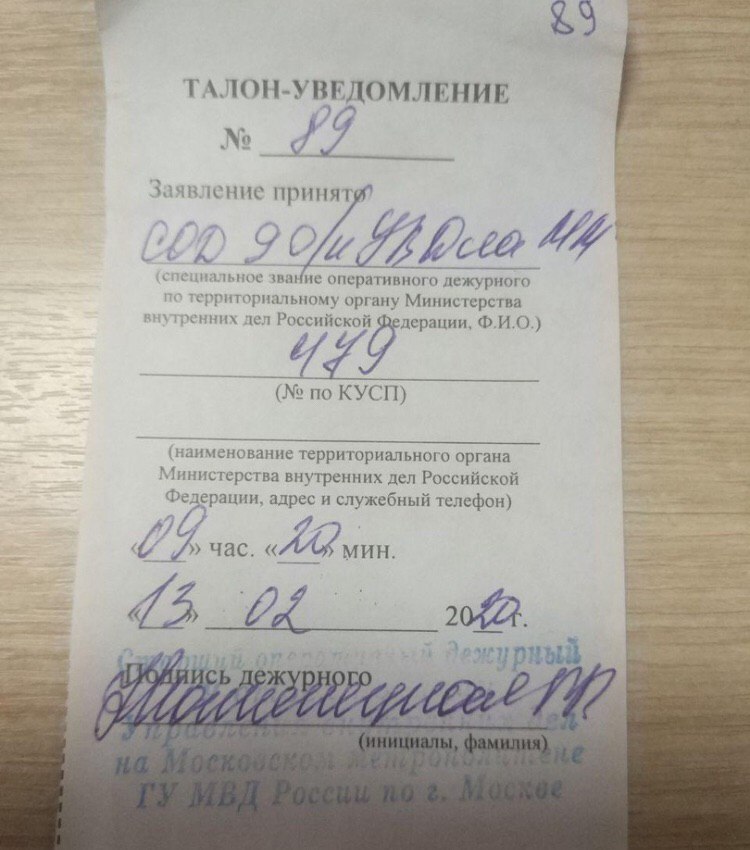 89
ТАЛОН-УВЕДОМЛЕНИЕ
№ 89
Заявление принято
СОД 9 О/п УВД на ММ
(специальное звание оперативного дежурного
по территориальному органу Министерства
внутренних дел Российской Федерации, Ф.И.О.)
479
(№ по КУСП)
(наименование территориального органа
Министерства внутренних дел Российской
Федерации, адрес и служебный телефон)
«09» час. «20» мин.
«13» 02 2020 г.
Старший оперативный дежурный
Подпись дежурного
Управления внутренних дел
(инициалы, фамилия)
на Московском метрополитене
ГУ МВД России по г. Москве